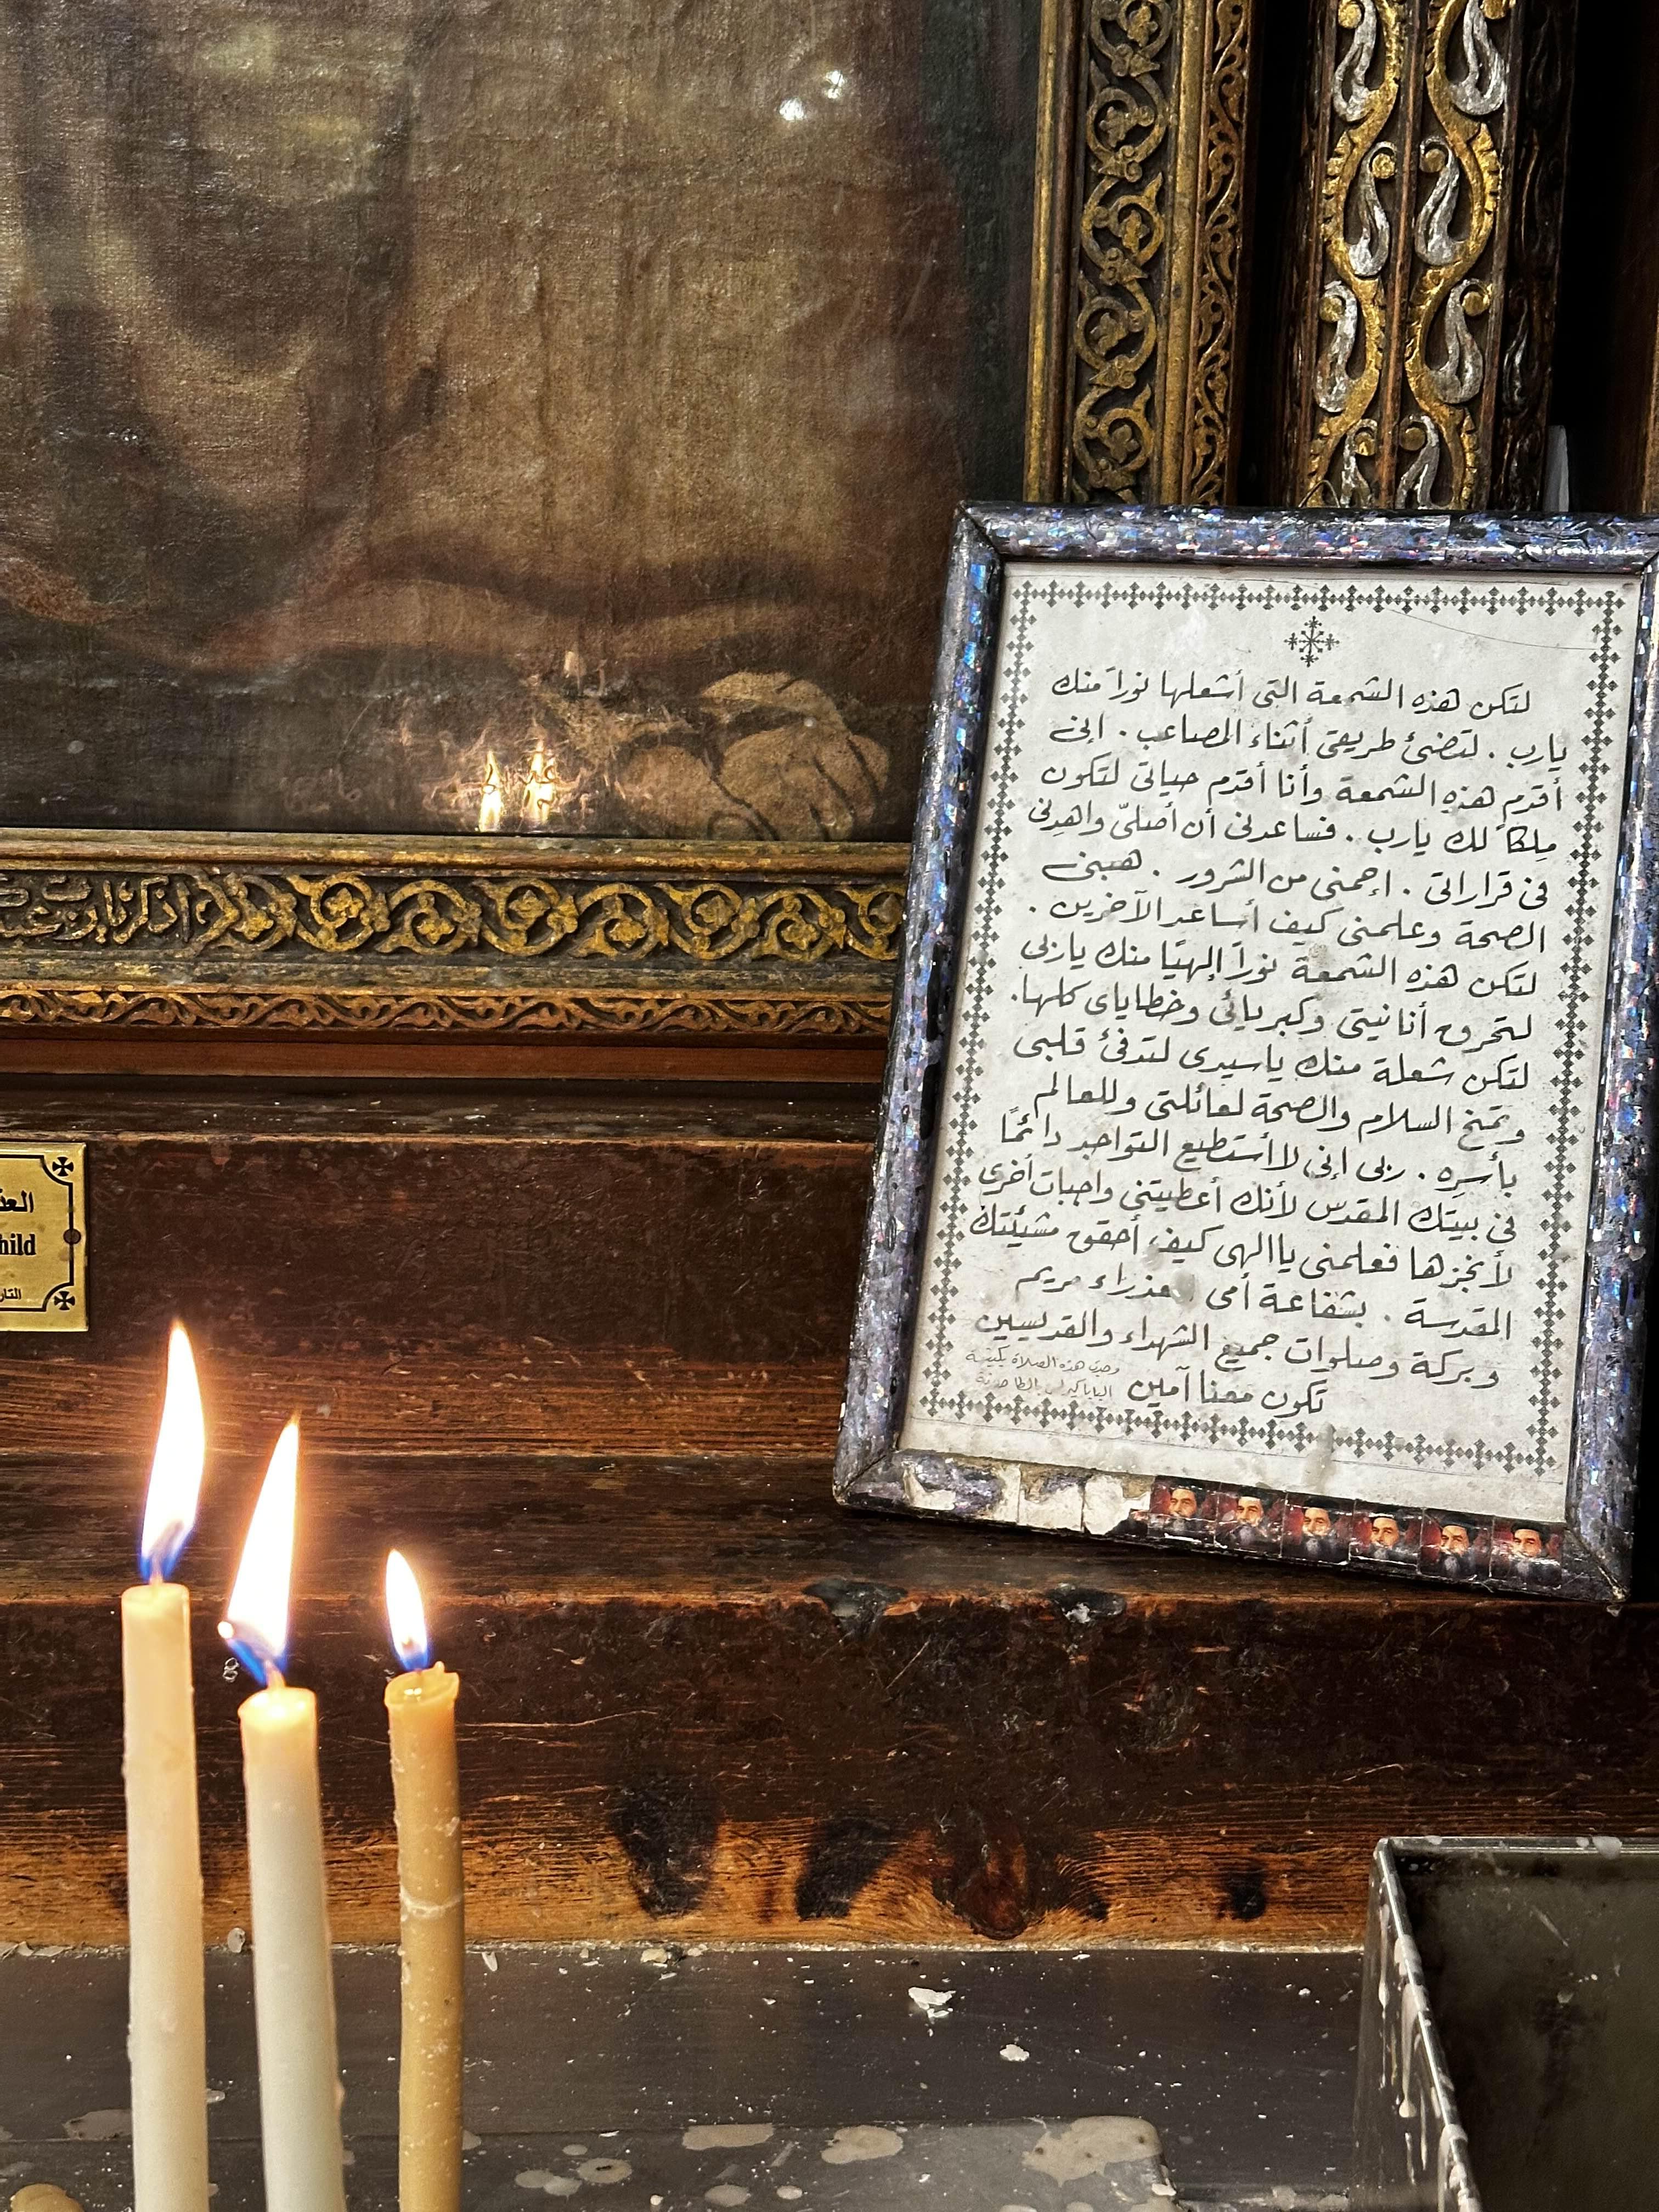 لتكن هذه الشمعة التى أشعلها نوراً منك
يارب . لتضئ طريقى أثناء المصاعب . إنى
أقدم هذه الشمعة وأنا أقدم حياتى لتكون
مِلكاً لك يارب . فساعدنى أن أصلىّ واهدِنى
فى قراراتى . إحمنى من الشرور . هبنى
الصحة وعلمنى كيف أساعد الآخرين .
لتكن هذه الشمعة نوراً إلهيّا منك ياربى
لتحرق أنانيتى وكبريائى وخطاياى كلها.
لتكن شعلة منك ياسيدى لتدفئ قلبى
وتمنح السلام والصحة لعائلتى وللعالم
بأسرِه . ربى إنى لا أستطيع التواجد دائمًا
فى بيتك المقدس لأنك أعطيتنى واجبات أخرى
لأنجزها فعلمنى ياإلهى كيف أحقق مشيئتك
المقدسة . بشفاعة أمى عذراء مريم
وبركة وصلوات جميع الشهداء والقديسين
تكون معنا آمين
وجدت هذه الصلاة بكنيسة
البابا كيرلس بالطاحونة
أذكر يارب
hild